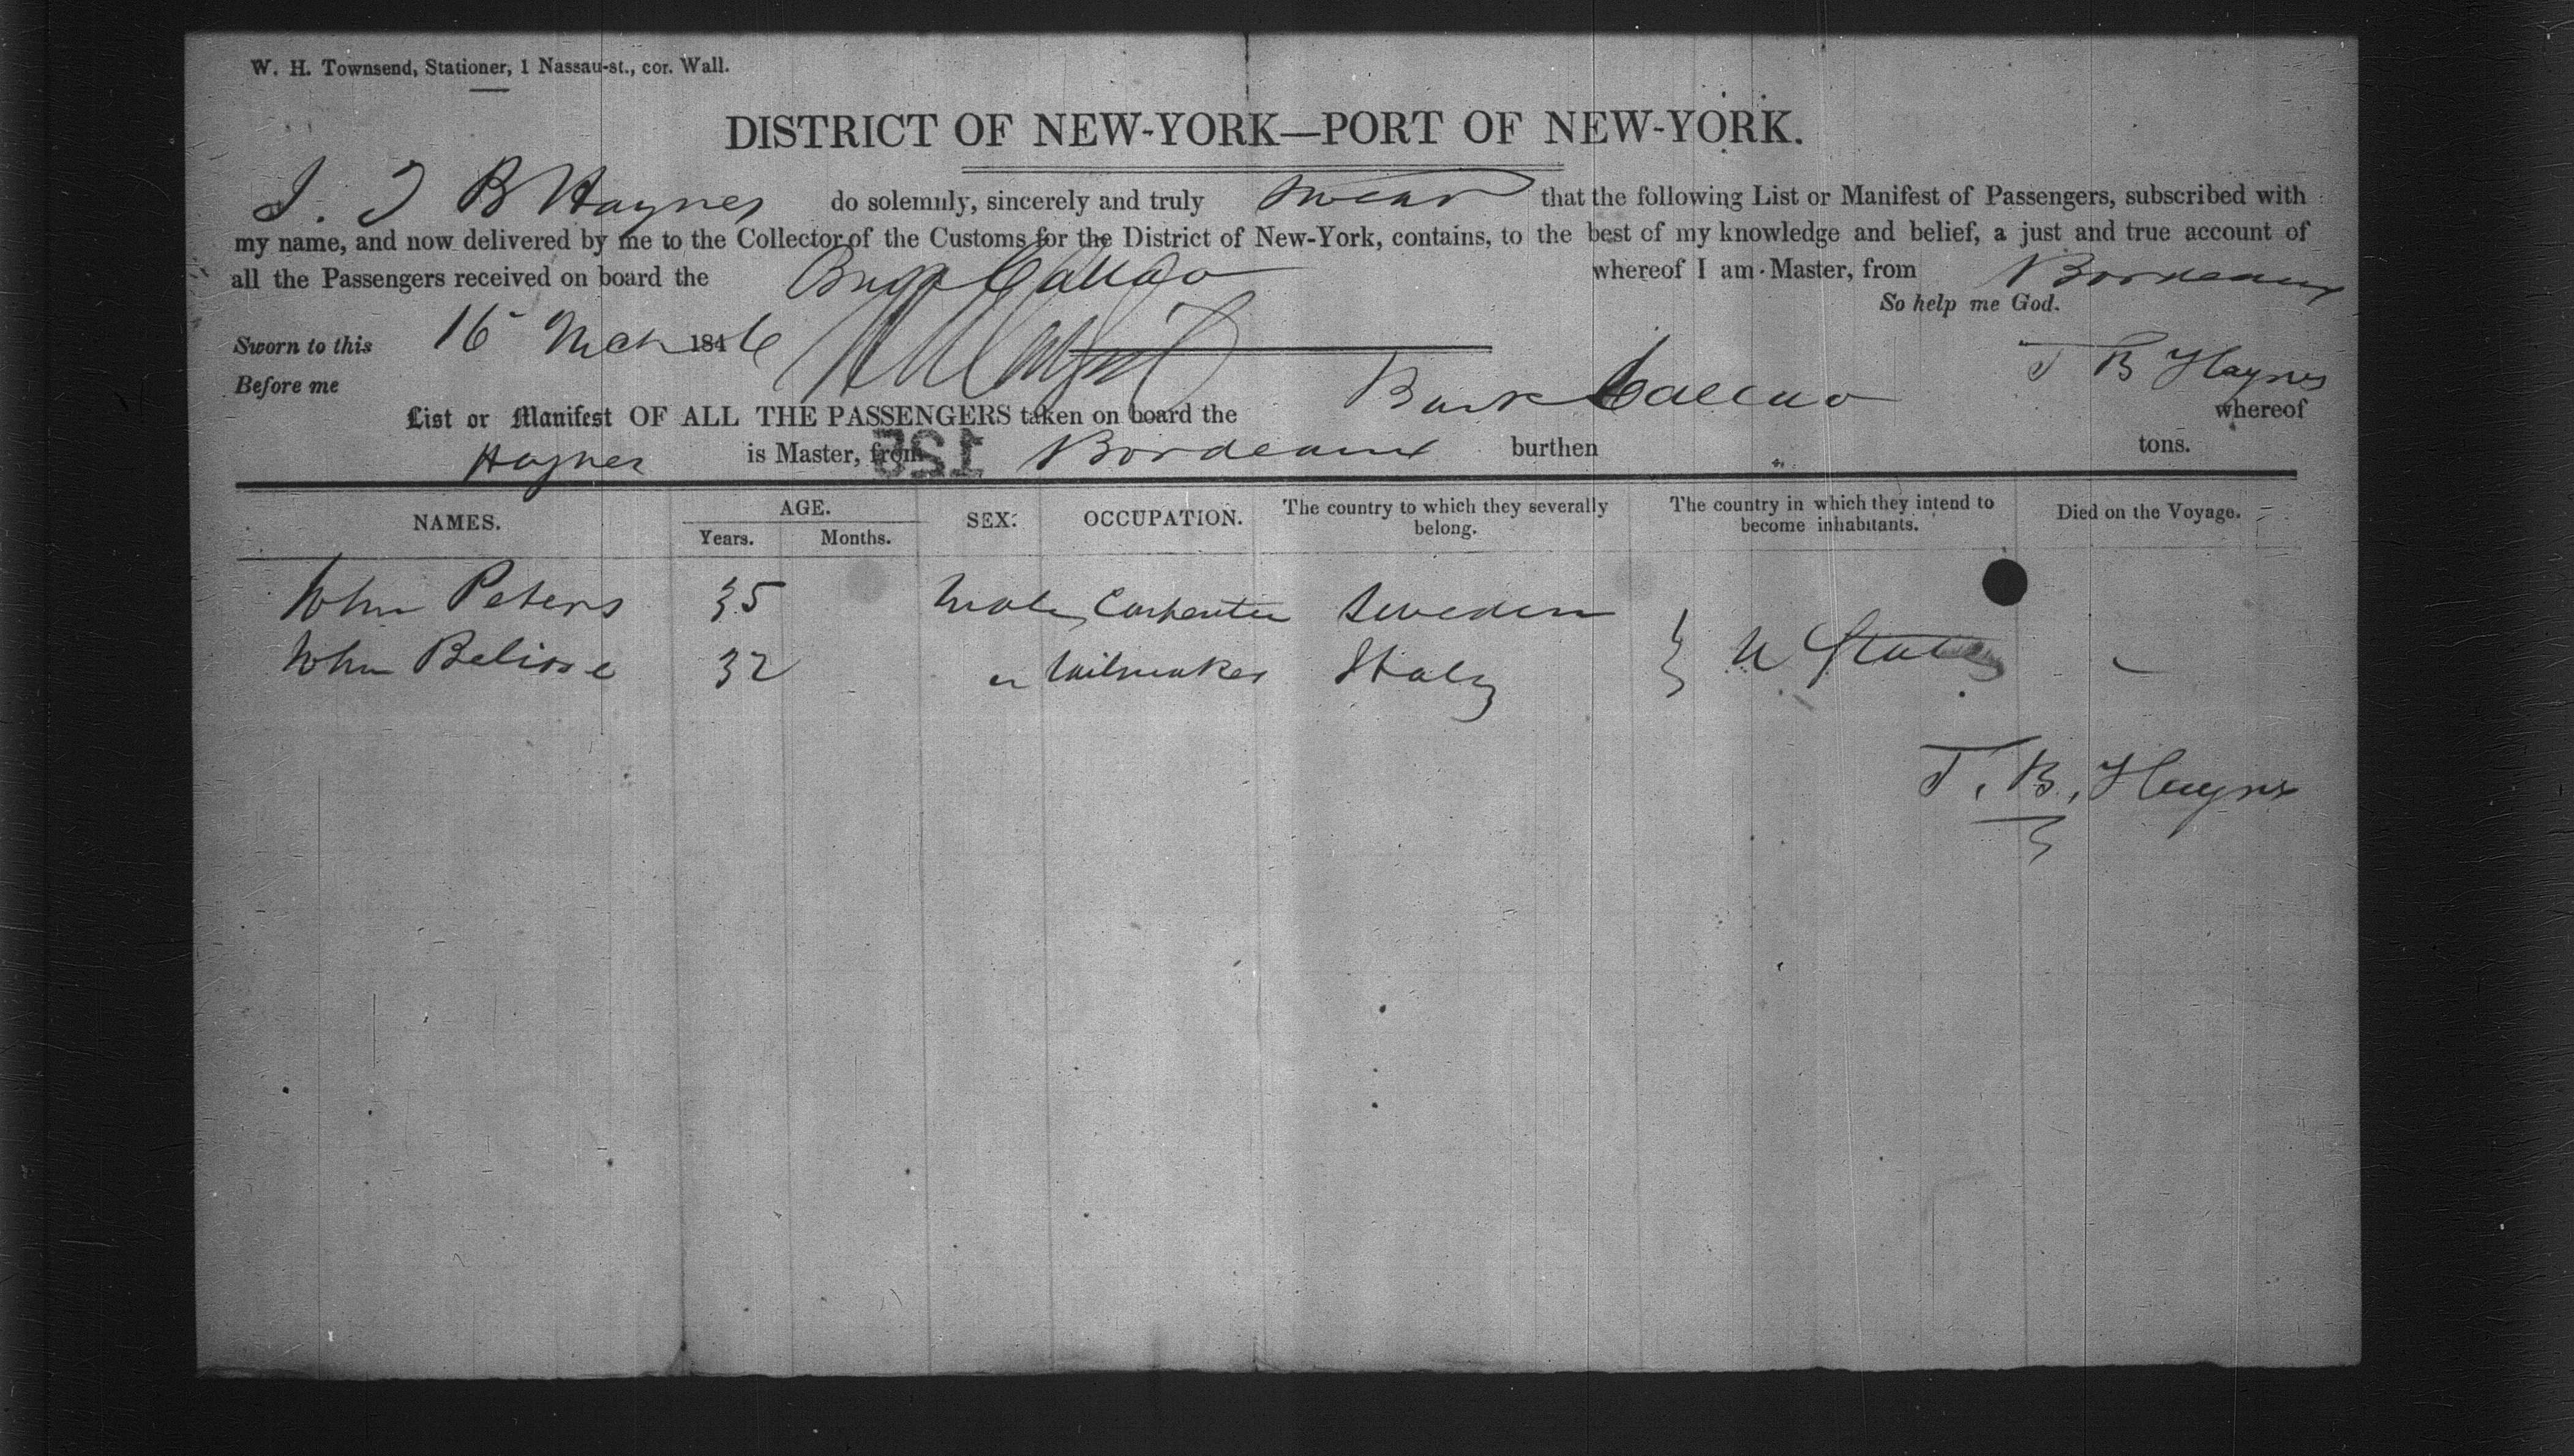 W. H. Townsend, Stationer, 1 Nassau-st., cor. Wall.
DISTRICT OF NEW-YORK—PORT OF NEW-YORK.
I. T B Haynes do solemnly, sincerely and truly swear that the following List or Manifest of Passengers, subscribed with
my name, and now delivered by me to the Collector of the Customs for the District of New-York, contains, to the best of my knowledge and belief, a just and true account of
all the Passengers received on board the Callao whereof I am Master, from Bordeaux
So help me God.
Sworn to this 16 Mch 1846
T B Haynes
Before me
List or Manifest OF ALL THE PASSENGERS taken on board the Bark Callao whereof
Haynes is Master, from Bordeaux burthen tons.
152
NAMES. AGE. Years. Months. SEX. OCCUPATION. The country to which they severally belong. The country in which they intend to become inhabitants. Died on the Voyage.
John Peters 35 Male Carpenter Sweden
John 32 " Sailmaker Italy } U States -
T. B. Haynes